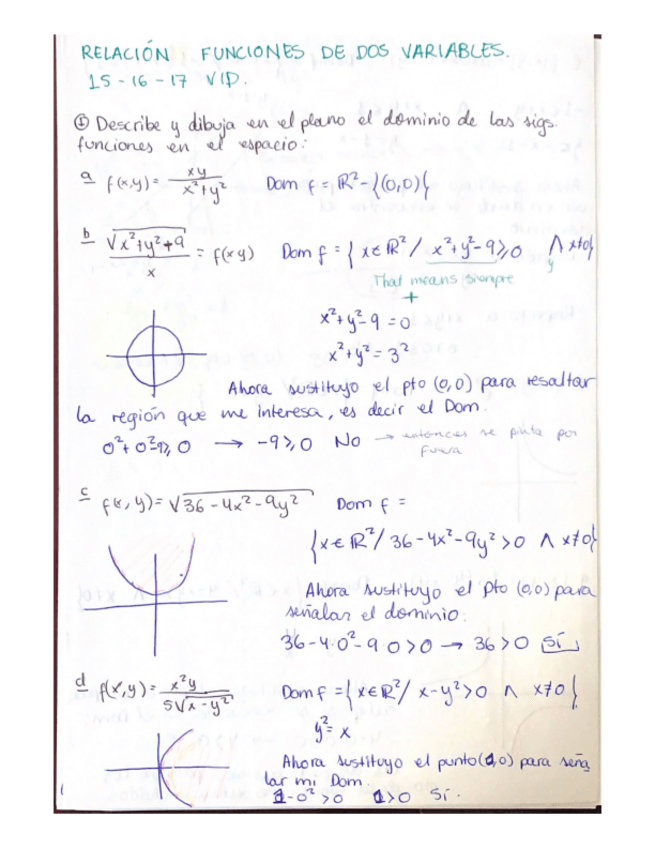 RELACIÓN FUNCIONES DE DOS VARIABLES.
15-16-17 VID.
① Describe y dibuja en el plano el dominio de las sigs.
funciones en el espacio:
a f(x,y) = xy / x²+y² Dom f = ℝ² - {(0,0)}
b √x²+y²+9 / x = f(x y) Dom f = { x ∈ ℝ² / x²+y²-9 ≥ 0 ∧ x≠0}
y
That means siempre
+
x²+y²-9 = 0
x²+y² = 3²
Ahora sustituyo el pto (0,0) para resaltar
la región que me interesa, es decir el Dom.
0²+0²-9 ≥ 0 → -9 ≥ 0 No → entonces se pinta por
fuera
c f(x,y) = √36-4x²-9y² Dom f =
{x ∈ ℝ² / 36-4x²-9y² > 0 ∧ x≠0}
Ahora sustituyo el pto (0,0) para
señalar el dominio:
36-4·0²-9·0 > 0 → 36 > 0 Sí
d f(x,y) = x²y / 5√x-y² Dom f = { x ∈ ℝ² / x-y² > 0 ∧ x≠0 }
y² = x
Ahora sustituyo el punto (1,0) para seña
lar mi Dom.
1-0² > 0 1 > 0 Sí.